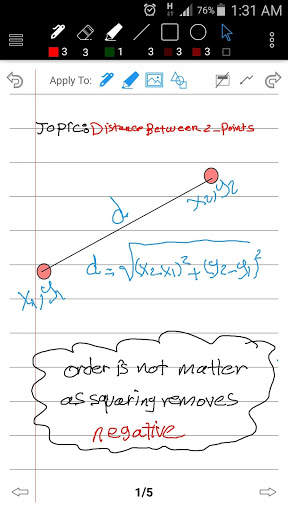 H 76% 1:31 AM
3 3 1 3 3
Apply To:
Topic: Distance Between 2-Points
x2,y2
d
x1,y1
d=√(x2-x1)²+(y2-y1)²
order is not matter
as squaring removes
negative
1/5